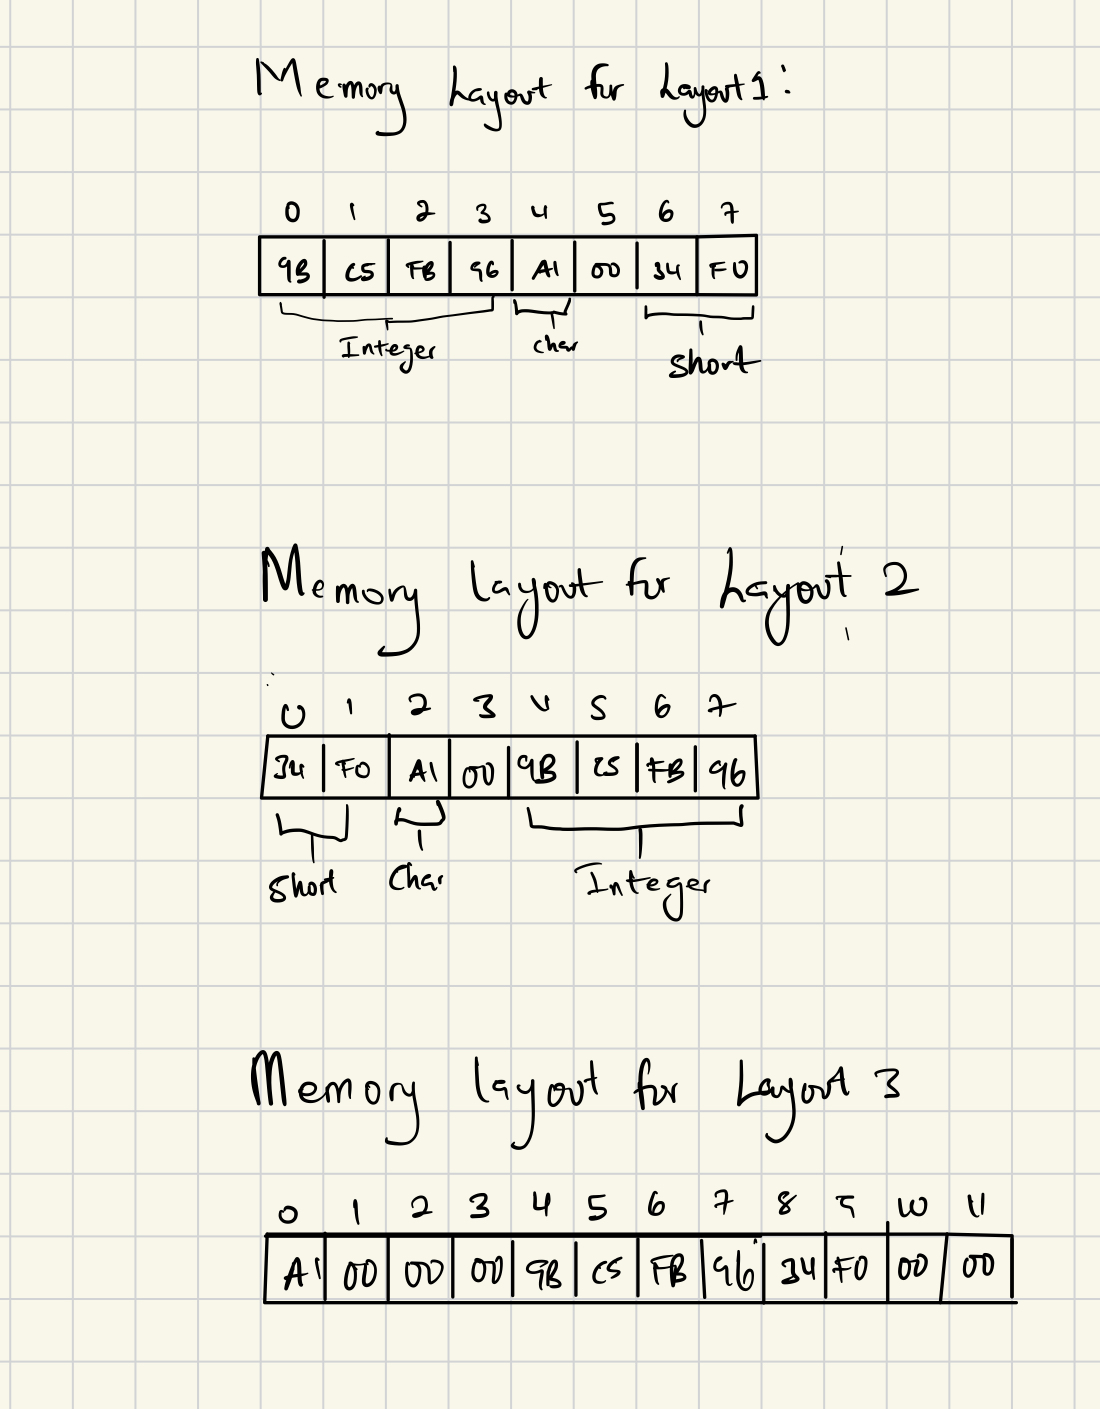 Memory Layout for Layout 1:
0 1 2 3 4 5 6 7
9B C5 FB 96 A1 00 34 F0
Integer char short
Memory layout for Layout 2
0 1 2 3 4 5 6 7
34 F0 A1 00 9B C5 FB 96
Short Char Integer
Memory layout for Layout 3
0 1 2 3 4 5 6 7 8 9 10 11
A1 00 00 00 9B C5 FB 96 34 F0 00 00